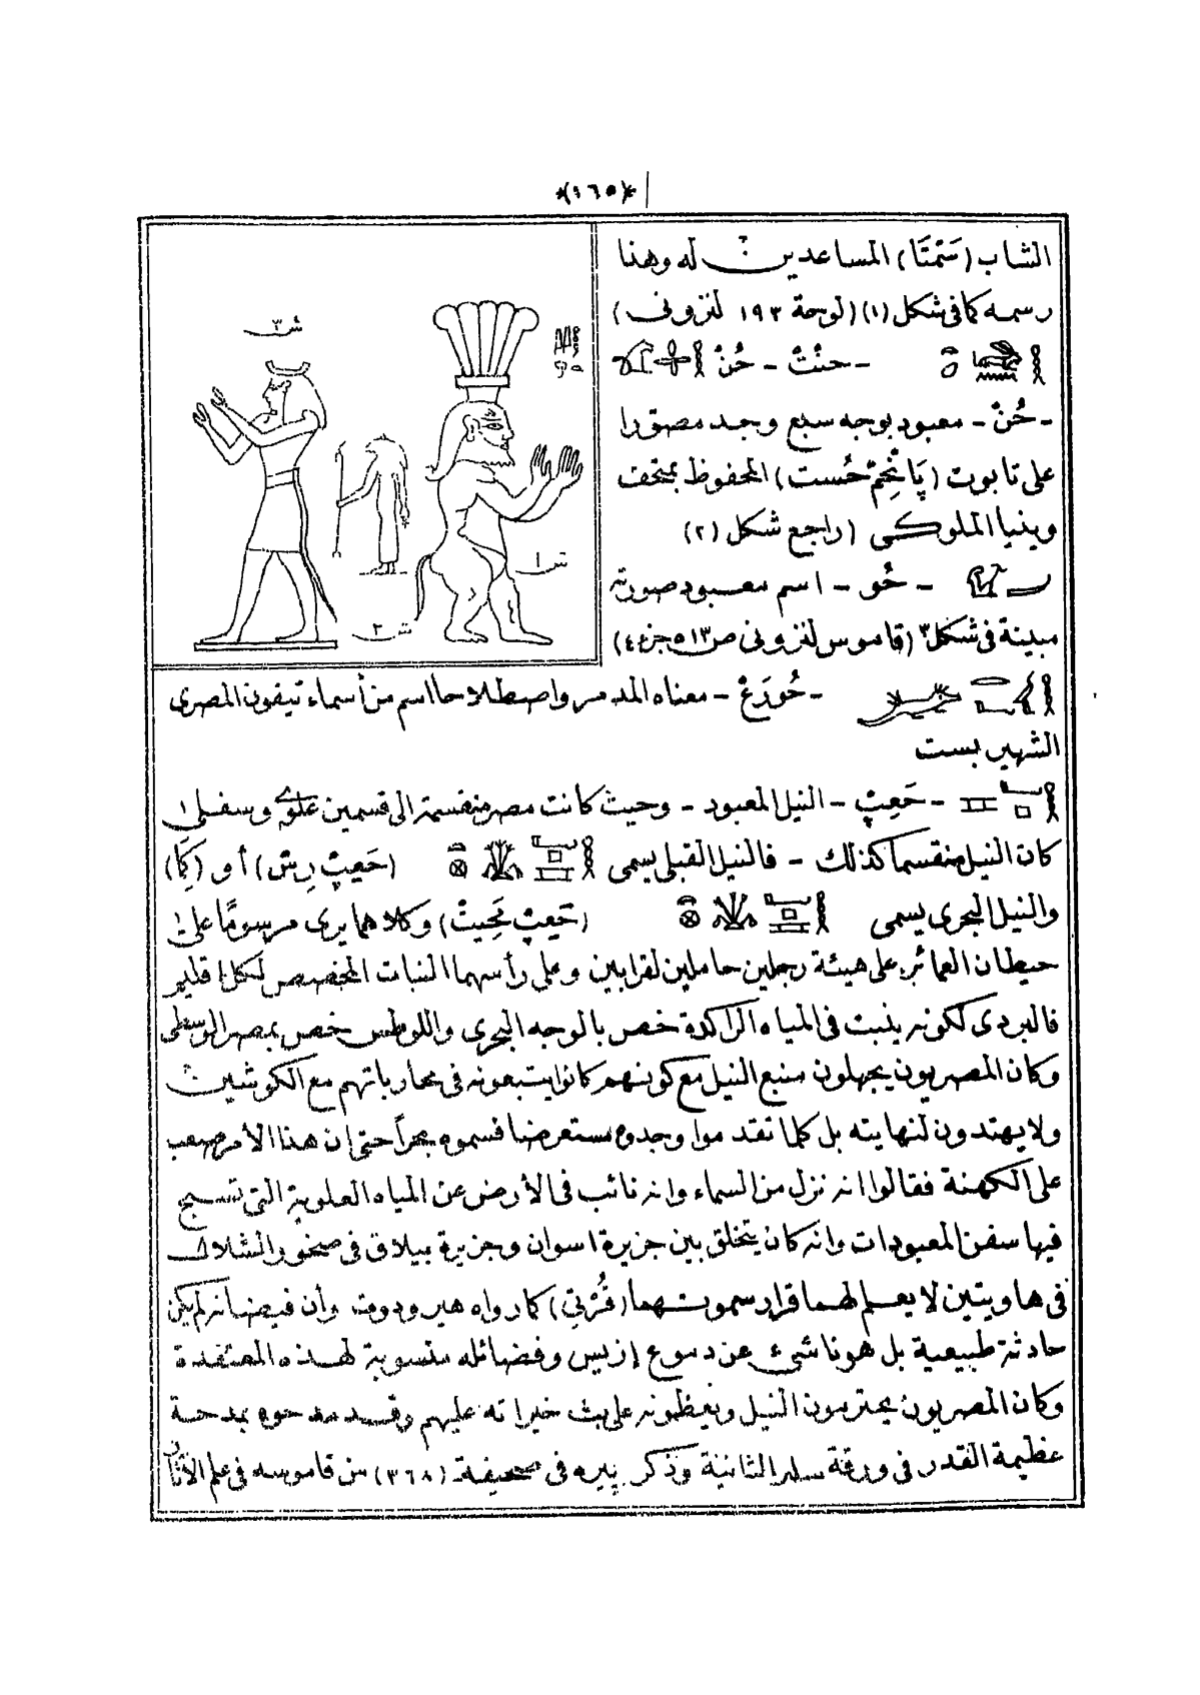 *(١٦٥)*
الشاب (سَمْتَا) المساعدين له وهذا
رسمه كما فى شكل (١) (لوحة ١٩٣ لنزونى)
- حنْتْ - حُنْ
- حُنْ - معبود بوجه سبع وجد مصوّرا
على تابوت (پَانِحِمْ حُست) المحفوظ بمتحف
وينيا الملوكى (راجع شكل (٢)
- حُو - اسم معبود صورته
مبينة فى شكل ٣ (قاموس لنزونى ص ٥١٣ جزء ٤)
ش ٣
ش ١
ش ٢
- حُورَعْ - معناه المدمر واصطلاحا اسم من أسماء تيفون المصرى
الشهير بست
- حَعِپْ - النيل المعبود - وحيث كانت مصر منقسمة الى قسمين علوى وسفلى
كان النيل منقسما كذلك - فالنيل القبلى يسمى (حَعِپْ رِسْ) أو (كِمَا)
والنيل البحرى يسمى (حَعِپْ مَحِيتْ) وكلاهما يرى مرسومًا على
حيطان العمائر على هيئة رجلين حاملين لقرابين وعلى رأسهما النبات المخصص لكل اقليم
فالبردى لكونه ينبت فى المياه الراكدة خص بالوجه البحرى واللوطس خص بمصر الوسطى
وكان المصريون يجهلون منبع النيل مع كونهم كانوا يتبعونه فى محارباتهم مع الكوشيين
ولا يهتدون لنهايته بل كلما تقدموا وجدوه مستعرضا فسموه بحراً حتى ان هذا الأمر صعب
على الكهنة فقالوا انه نزل من السماء وانه نائب فى الأرض عن المياه العلوية التى تسبح
فيها سفن المعبودات وانه كان يتخلق بين جزيرة اسوان وجزيرة بيلاق فى صخور الشلالات
فى هاويتين لا يعلم لهما قرار سموتهما (قُرْتِي) كما رواه هيرودوت وأن فيضانه لم يكن
حادثة طبيعية بل هو ناشئ عن دموع إزيس وفضائله منسوبة لهذه المعتقدة
وكان المصريون يحترمون النيل ويعظمونه على بث خيراته عليهم وقد مدحوه بمدحة
عظيمة القدر فى ورقة سلير الثانية وذكر پيره فى صحيفة (٣٦٨) من قاموسه فى علم الآثار